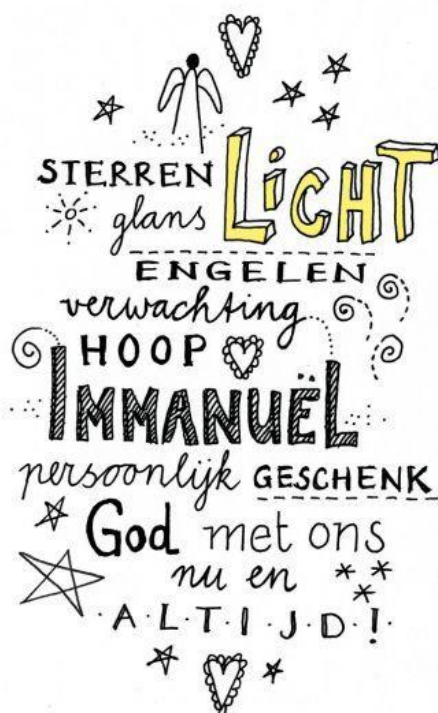 STERREN LiCHT
glans
ENGELEN
verwachting
HOOP
IMMANUËL
persoonlijk GESCHENK
God met ons
nu en
A·L·T·I·J·D!